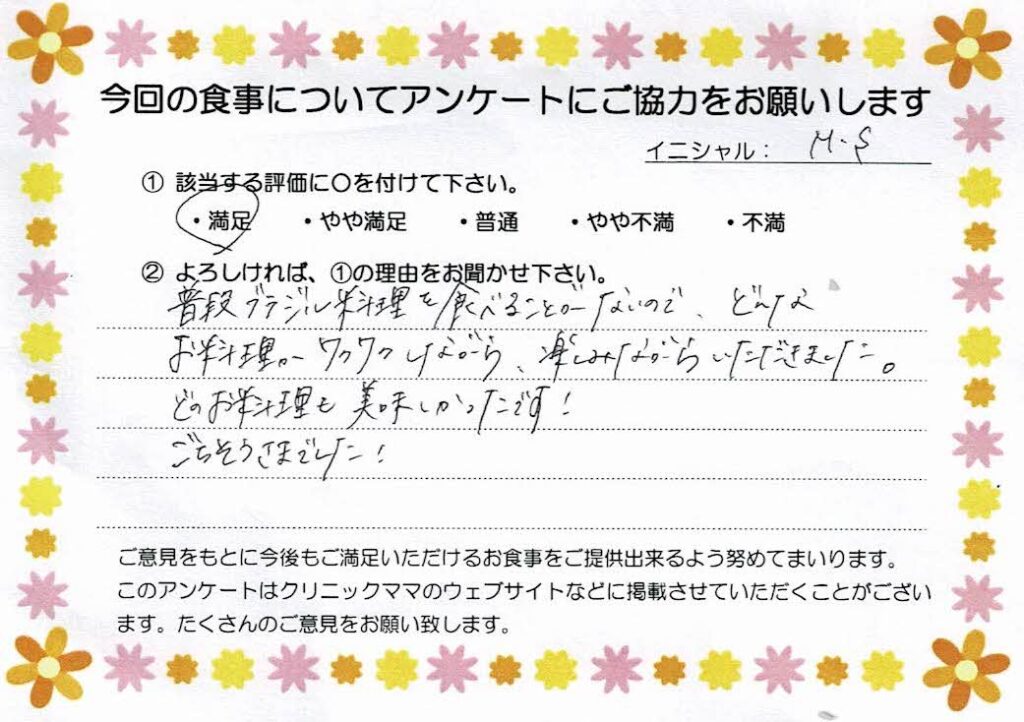 今回の食事についてアンケートにご協力をお願いします
イニシャル： M・S
① 該当する評価に〇を付けて下さい。
・満足 ・やや満足 ・普通 ・やや不満 ・不満
② よろしければ、①の理由をお聞かせ下さい。
普段ブラジル料理を食べることがないので、どんな
お料理かワクワクしながら、楽しみながらいただきました。
どのお料理も美味しかったです！
ごちそうさまでした！
ご意見をもとに今後もご満足いただけるお食事をご提供出来るよう努めてまいります。
このアンケートはクリニックママのウェブサイトなどに掲載させていただくことがござい
ます。たくさんのご意見をお願い致します。